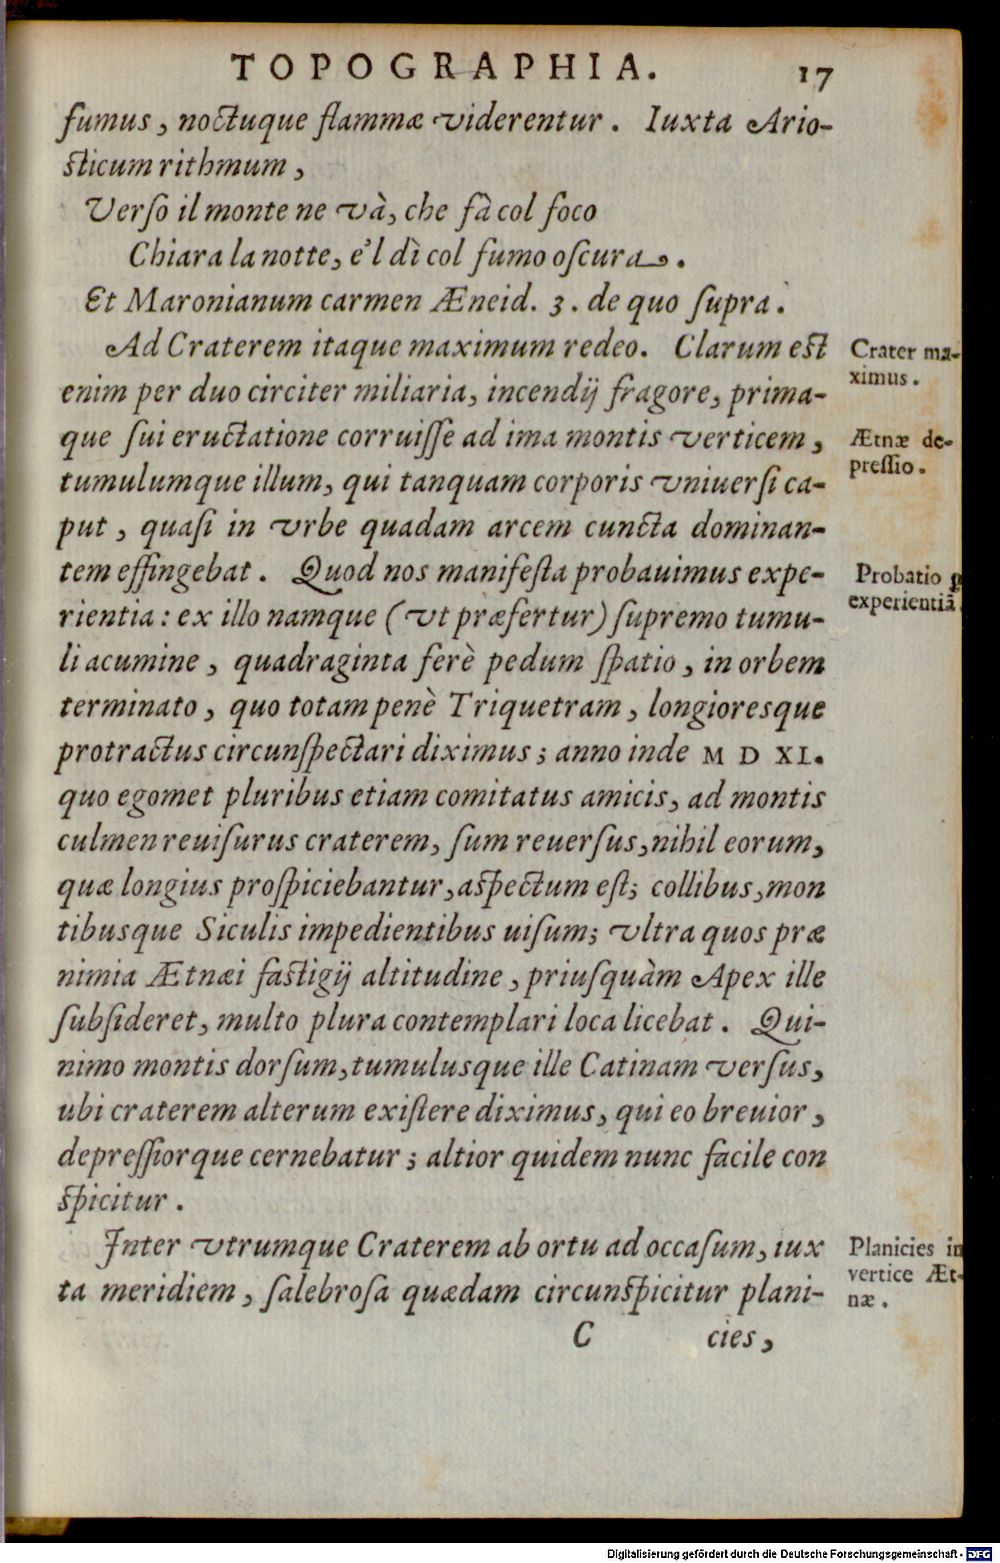 TOPOGRAPHIA. 17
fumus, noctuque flammæ viderentur. Iuxta Ario-
sticum rithmum,
Verso il monte ne và, che fà col foco
Chiara la notte, e'l dì col fumo oscura.
Et Maronianum carmen Æneid. 3. de quo supra.
Ad Craterem itaque maximum redeo. Clarum est
Crater ma-
ximus.
enim per duo circiter miliaria, incendij fragore, prima-
que sui eructatione corruisse ad ima montis verticem,
Ætnæ de-
pressio.
tumulumque illum, qui tanquam corporis vniuersi ca-
put, quasi in vrbe quadam arcem cuncta dominan-
tem effingebat. Quod nos manifesta probauimus expe-
Probatio ꝑ
experientiā.
rientia: ex illo namque (vt præfertur) supremo tumu-
li acumine, quadraginta ferè pedum spatio, in orbem
terminato, quo totam penè Triquetram, longioresque
protractus circunspectari diximus; anno inde M D XI.
quo egomet pluribus etiam comitatus amicis, ad montis
culmen reuisurus craterem, sum reuersus, nihil eorum,
quæ longius prospiciebantur, aspectum est; collibus, mon
tibusque Siculis impedientibus uisum; vltra quos præ
nimia Ætnæi fastigij altitudine, priusquàm Apex ille
subsideret, multo plura contemplari loca licebat. Qui-
nimo montis dorsum, tumulusque ille Catinam versus,
ubi craterem alterum existere diximus, qui eo breuior,
depressiorque cernebatur; altior quidem nunc facile con
spicitur.
Inter vtrumque Craterem ab ortu ad occasum, iux
Planicies in
vertice Æt-
næ.
ta meridiem, salebrosa quædam circunspicitur plani-
C cies,
Digitalisierung gefördert durch die Deutsche Forschungsgemeinschaft - DFG